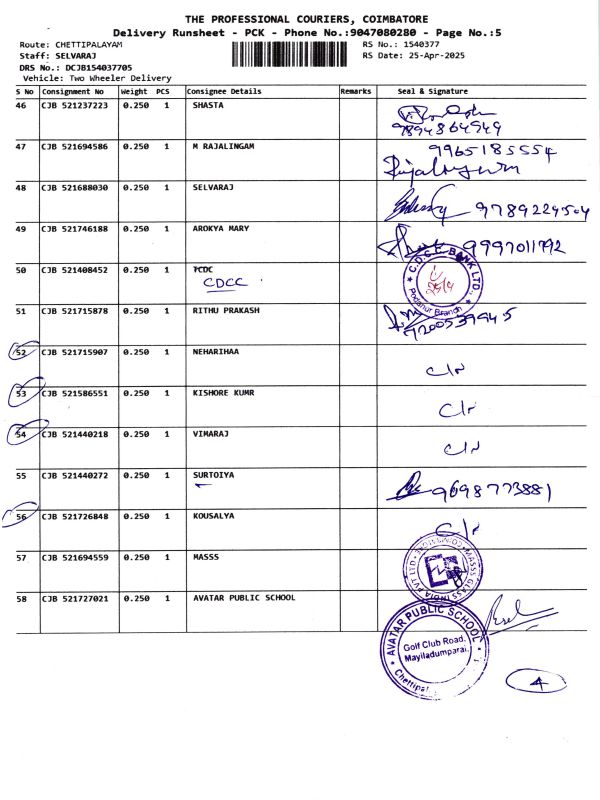 THE PROFESSIONAL COURIERS, COIMBATORE
Delivery Runsheet - PCK - Phone No.:9047080280 - Page No.:5
Route: CHETTIPALAYAM RS No.: 1540377
Staff: SELVARAJ RS Date: 25-Apr-2025
DRS No.: DCJB154037705
Vehicle: Two Wheeler Delivery
S No Consignment No Weight PCS Consignee Details Remarks Seal & Signature
46 CJB 521237223 0.250 1 SHASTA
9894864949
47 CJB 521694586 0.250 1 M RAJALINGAM 9965185554
Rajalingam
48 CJB 521688030 0.250 1 SELVARAJ
9789229504
49 CJB 521746188 0.250 1 AROKYA MARY
9997011792
50 CJB 521408452 0.250 1 TCDC
CDCC
C.D.C.C. BANK LTD.,
25/4
Podanur Branch
51 CJB 521715878 0.250 1 RITHU PRAKASH
9200539945
52 CJB 521715907 0.250 1 NEHARIHAA
C/r
53 CJB 521586551 0.250 1 KISHORE KUMR
C/r
54 CJB 521440218 0.250 1 VIMARAJ
C/r
55 CJB 521440272 0.250 1 SURTOIYA
9698773881
56 CJB 521726848 0.250 1 KOUSALYA
C/r
57 CJB 521694559 0.250 1 MASSS
MASSS GLASS INDIA PVT LTD
58 CJB 521727021 0.250 1 AVATAR PUBLIC SCHOOL
AVATAR PUBLIC SCHOOL
Golf Club Road,
Mayiladumparai,
4